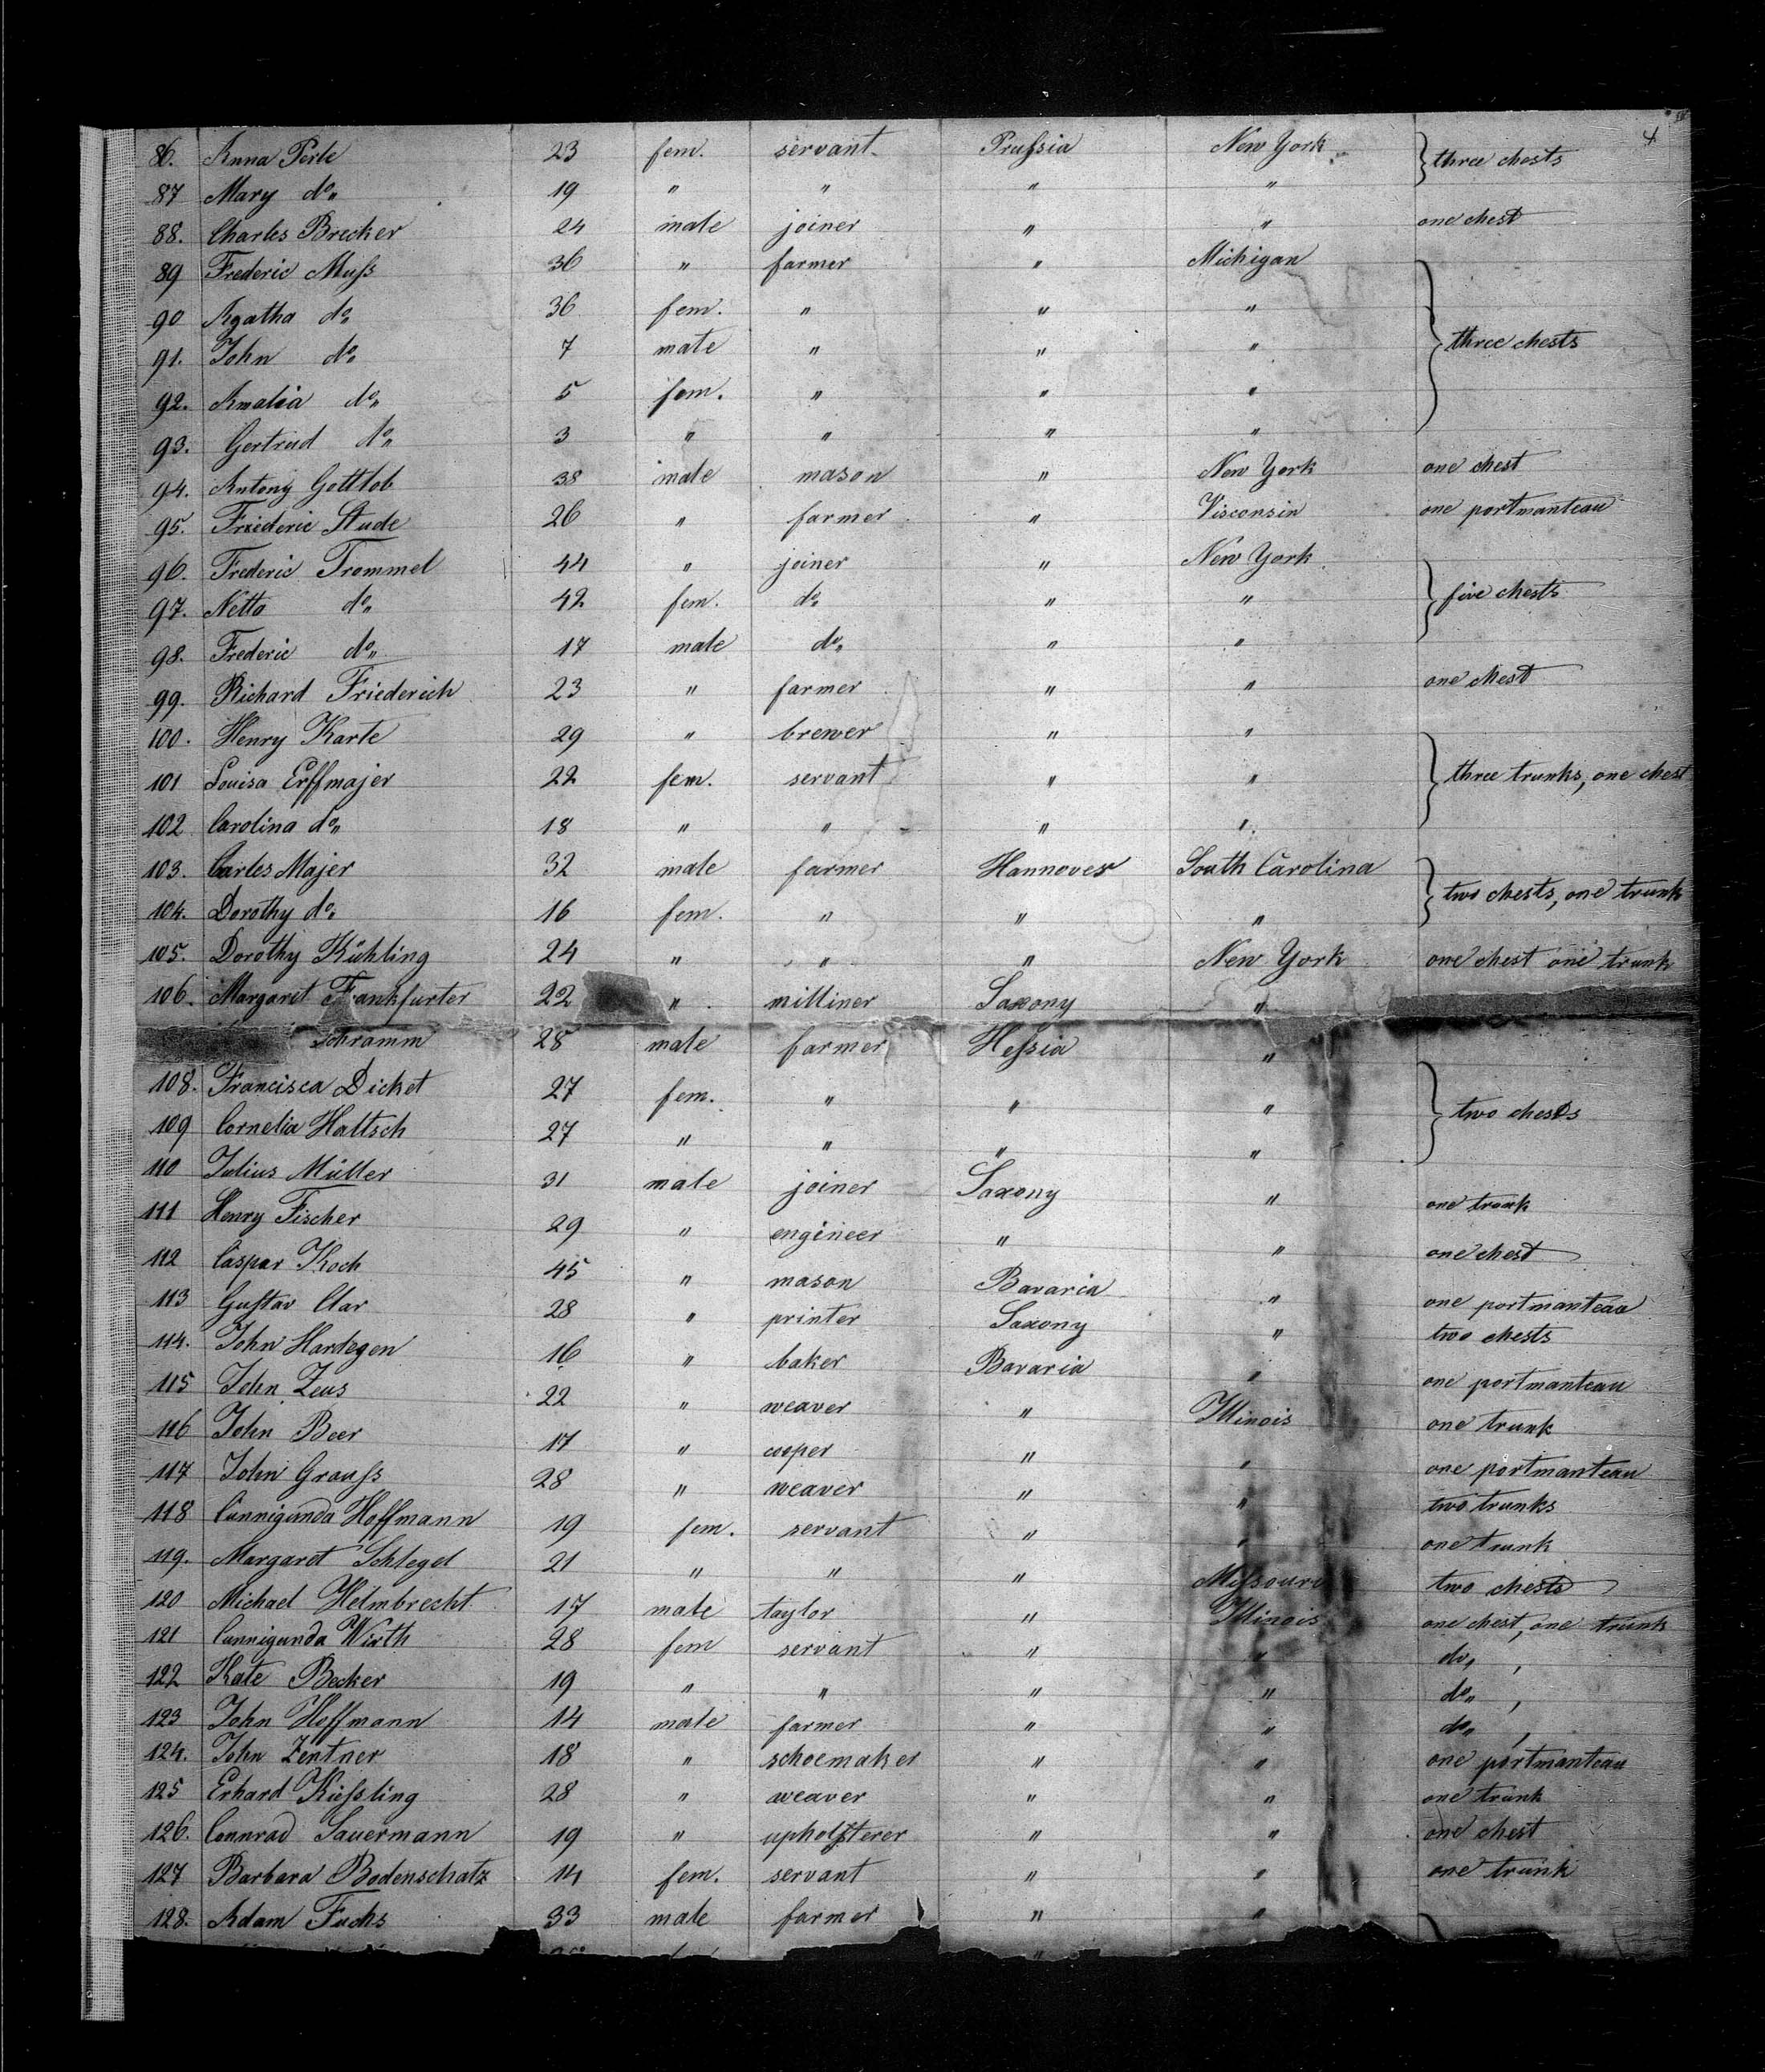 4
86. Anna Perle 23 fem. servant Prußia New York } three chests
87 Mary do„ 19 " " " "
88. Charles Brecker 24 male joiner " " one chest
89 Frederic Muß 36 " farmer " Michigan
90 Agatha do„ 36 fem. " " "
91. John do„ 7 male " " " } three chests
92. Amalia do„ 5 fem. " " "
93. Gertrud do„ 3 " " " "
94. Antony Gottlob 38 male mason " New York one chest
95. Friederic Stude 26 " farmer " Visconsin one portmanteau
96. Frederic Trommel 44 " joiner " New York
97. Netta do„ 42 fem. do„ " " } five chests
98. Frederic do„ 17 male do„ " "
99. Richard Friederich 23 " farmer " " one chest
100. Henry Karte 29 " brewer " "
101 Louisa Erffmajer 22 fem. servant " " } three trunks, one chest
102 Carolina do„ 18 " " " "
103. Carles Majer 32 male farmer Hannover South Carolina
104. Dorothy do„ 16 fem. " " " } two chests, one trunk
105. Dorothy Kühling 24 " " " New York one chest one trunk
106. Margaret Frankfurter 22 " milliner Saxony "
Schramm 28 male farmer Heßia "
108. Francisca Dickel 27 fem. " " " } two chests
109 Cornelia Hattsch 27 " " " "
110 Julius Müller 31 male joiner Saxony " one trunk
111 Henry Fischer 29 " engineer " " one chest
112 Caspar Koch 45 " mason Bavaria " one portmanteau
113 Gustav Clar 28 " printer Saxony " two chests
114. John Hardegen 16 " baker Bavaria " one portmanteau
115 John Zeus 22 " weaver " Illinois one trunk
116 John Beer 17 " cooper " " one portmanteau
117 John Grauß 28 " weaver " " two trunks
118 Cunnigunda Hoffmann 19 fem. servant " " one trunk
119. Margaret Schlegel 21 " " " Mißouri two chests
120 Michael Helmbrecht 17 male taylor " Illinois one chest, one trunk
121 Cunnigunda Wirth 28 fem servant " " do„ ,
122 Kate Becker 19 " " " " do„ ,
123 John Hoffmann 14 male farmer " " do„ ,
124. John Zentner 18 " schoemaker " " one portmanteau
125 Erhard Kießling 28 " weaver " " one trunk
126. Connrad Sauermann 19 " upholsterer " " one chest
127 Barbara Bodenschatz 14 fem. servant " " one trunk
128. Adam Fuchs 33 male farmer " "